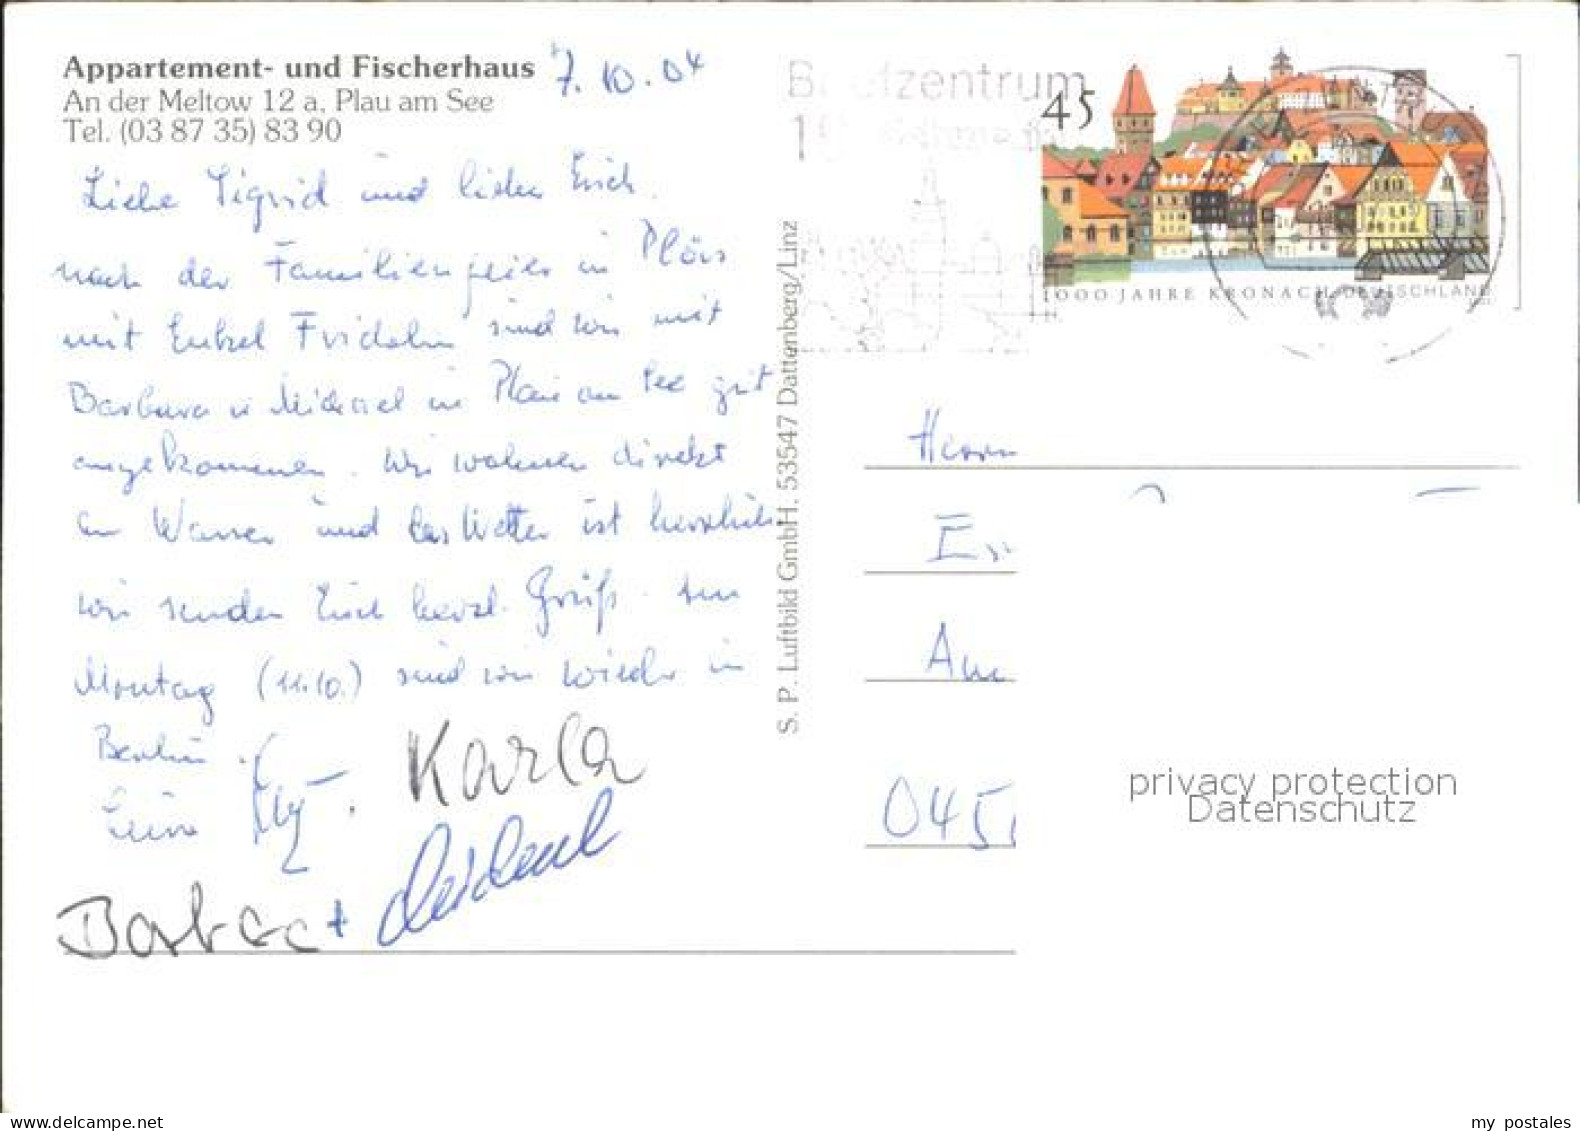 Appartement- und Fischerhaus
7.10.04
An der Meltow 12 a, Plau am See
Tel. (03 87 35) 83 90
Liebe Sigrid und lieber Erich.
nach der Familienfeier in
mit Enkel Fridolin sind wir mit
Barbara u Michael in Plau am See gut
angekommen. Wir wohnen direkt
am Wasser und das Wetter ist herrlich
wir senden Euch herzl. Grüße. Am
Montag (11.10.) sind wir wieder in
Berlin.
Eure
Karla
Barbara +
S. P. Luftbild GmbH, 53547 Dattenberg/Linz
Briefzentrum
45
1000 JAHRE KRONACH DEUTSCHLAND
Herrn
045
privacy protection
Datenschutz
www.delcampe.net
my_postales